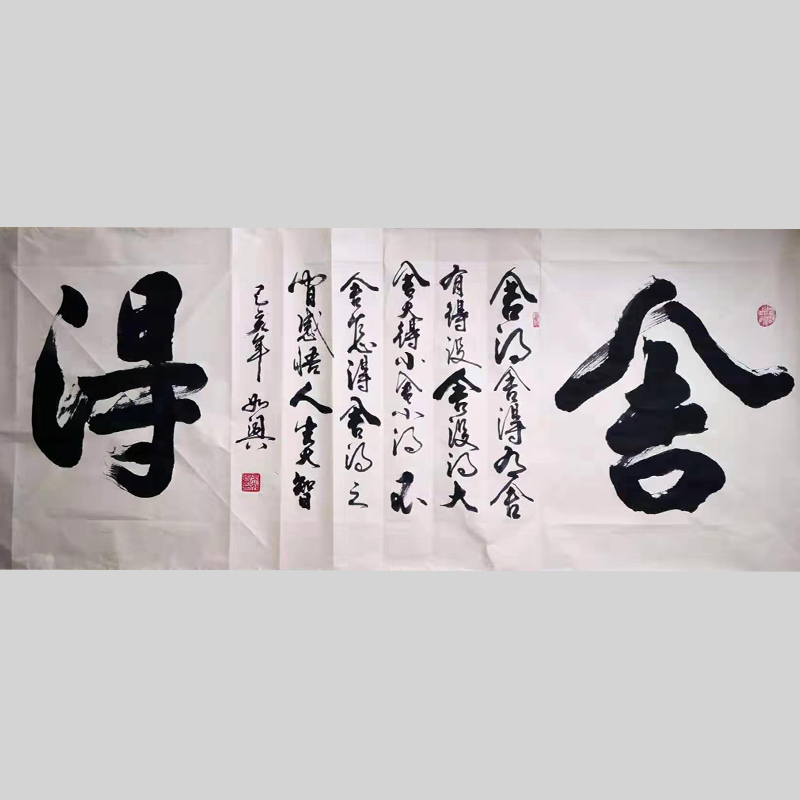 舍
舍得舍得有舍
有得没舍没得大
舍大得小舍小得不
舍怎得舍得之
间感悟人生大智
己亥年 如興
得